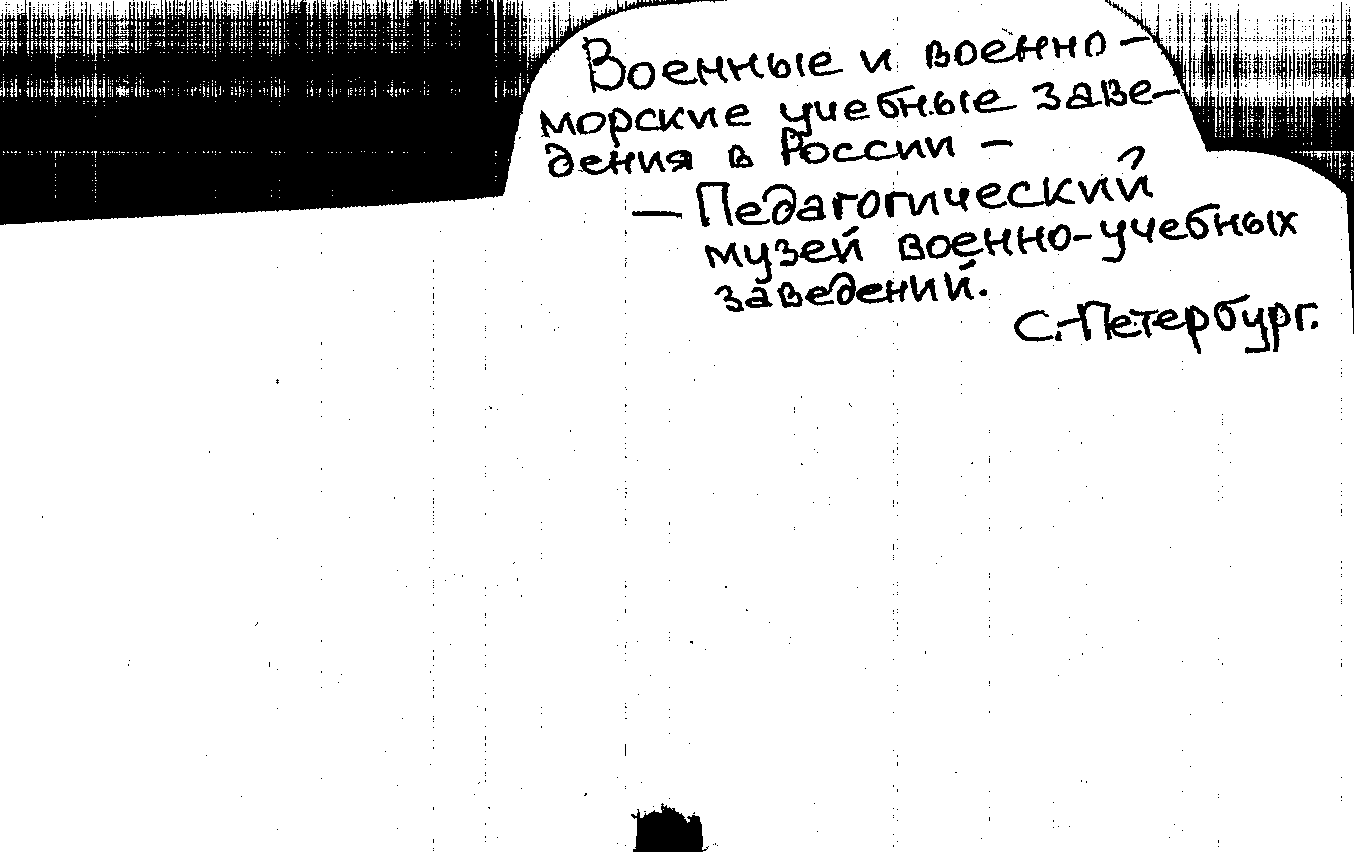 Военные и военно-
морские учебные заве-
дения в России -
- Педагогический
музей военно-учебных
заведений.
С.-Петербург.